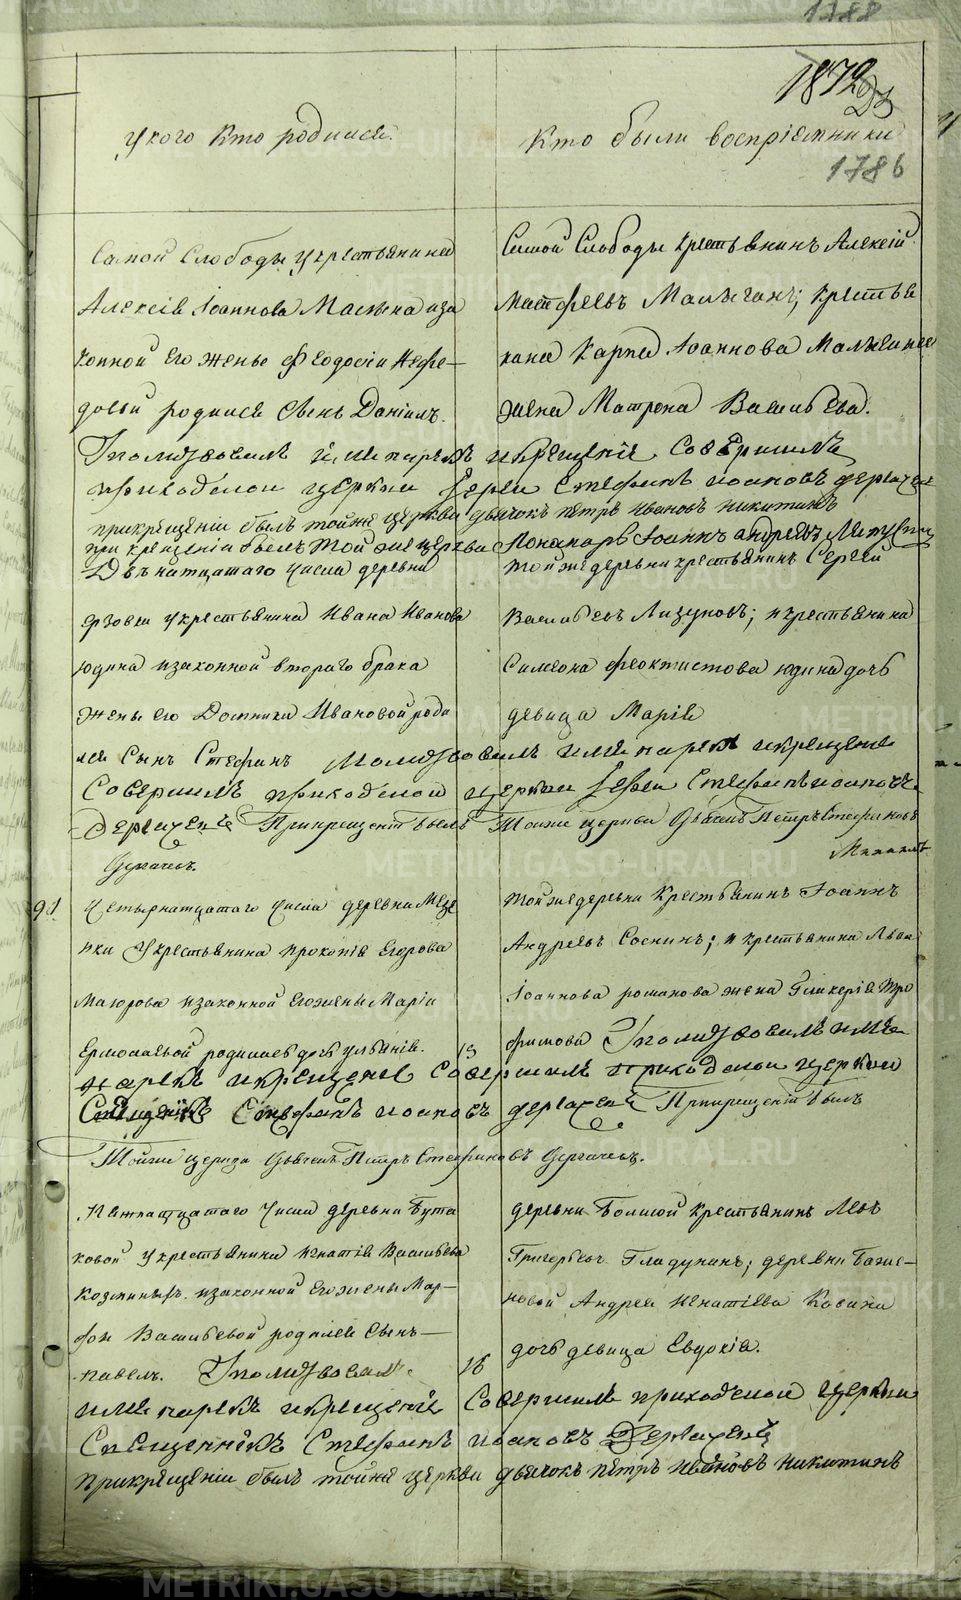 1788
1872
У кого кто родился.
Кто были воспріемники
1786
Самой Слободы у крестьянина
Алексія Іоаннова и за
конной его жены Феодосіи Нефе-
довой родился Сынъ Даніилъ.
Самой Слободы крестьянинъ Алексій
Матфеевъ крестья
нина Карпа Іоаннова
жена Матрона Васильева.
Молитвовалъ и имя нарекъ и крещеніе совершилъ
приходской церкви Іерей Стефанъ Иоановъ
при крещеніи былъ тойже церкви дьячокъ петръ Ивановъ никитинъ
при крещеніи былъ Той же церкви Пономарь Іоаннъ андреевъ
Двенатцатаго числа деревни
у крестьянина Ивана Иванова
юдина и законной втораго брака
жены его Домники Ивановой роди
лся Сынъ Стефанъ
Той же деревни крестьянинъ Сергей
Васильевъ Лизуновъ; и крестьянина
Симеона феоктистова юдина дочь
девица Марія
Молитвовалъ имя нарекъ и крещеніе
Совершилъ приходской церкви Іерей Стефанъ Иоановъ
При крещеніи былъ Тойже церкви Дьячекъ Петръ Стефановъ
91.
Четырнатцатаго числа деревни Мезе
нки У крестьянина прокопія Егорова
Маюрова и законной его жены Маріи
Ермолаевой родилась дочь Ульянія.
13
Той же деревни Крестьянинъ Іоаннъ
Андреевъ Соснинъ; и крестьянина Льва
Іоаннова романова жена Гликерія Тро
фимова Молитвовалъ имя
нарекъ и крещеніе Совершилъ приходской церкви
Священникъ Стефанъ иоановъ При крещеніи былъ
Тойже церкви Дьячекъ Петръ Стефановъ
числа деревни Бута
ковой У крестьянина игнатія Васильева
и законной его жены Мар-
фы Васильевой родился Сынъ
павелъ. Молитвовалъ
16
деревни Крестьянинъ Левъ
Григорьевъ деревни Баже-
новой Андрея Игнатіева
дочь девица Евдокія.
имя нарекъ и крещеніе Совершилъ приходской церкви
Священникъ Стефанъ иоановъ
При крещеніи былъ тойже церкви дьячокъ петръ Ивановъ никитинъ
METRIKI.GASO-URAL.RU